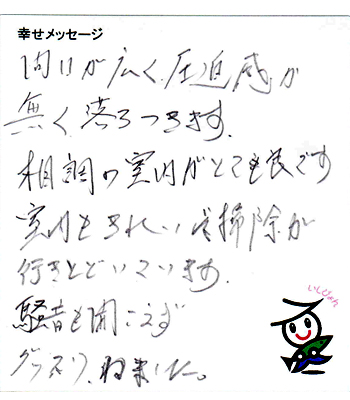 幸せメッセージ
間口が広く、圧迫感が
無く落ちつきます。
相調の室内がとても良です
室内もきれいで掃除が
行きとどいています。
騒音も聞こえず
グッスリ、ねました。